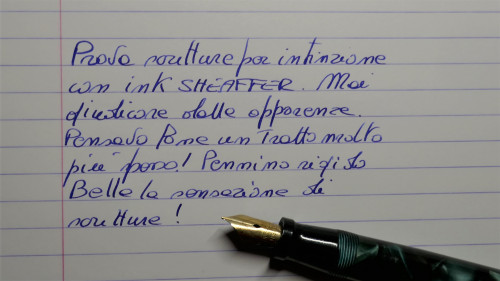 Prova scritture per intinzione
con ink SHEAFFER. Mai
giudicare dalle apparenze.
Pensavo fosse un Tratto molto
più poroso! Pennino rigido
Bella la sensazione di
scrittura!